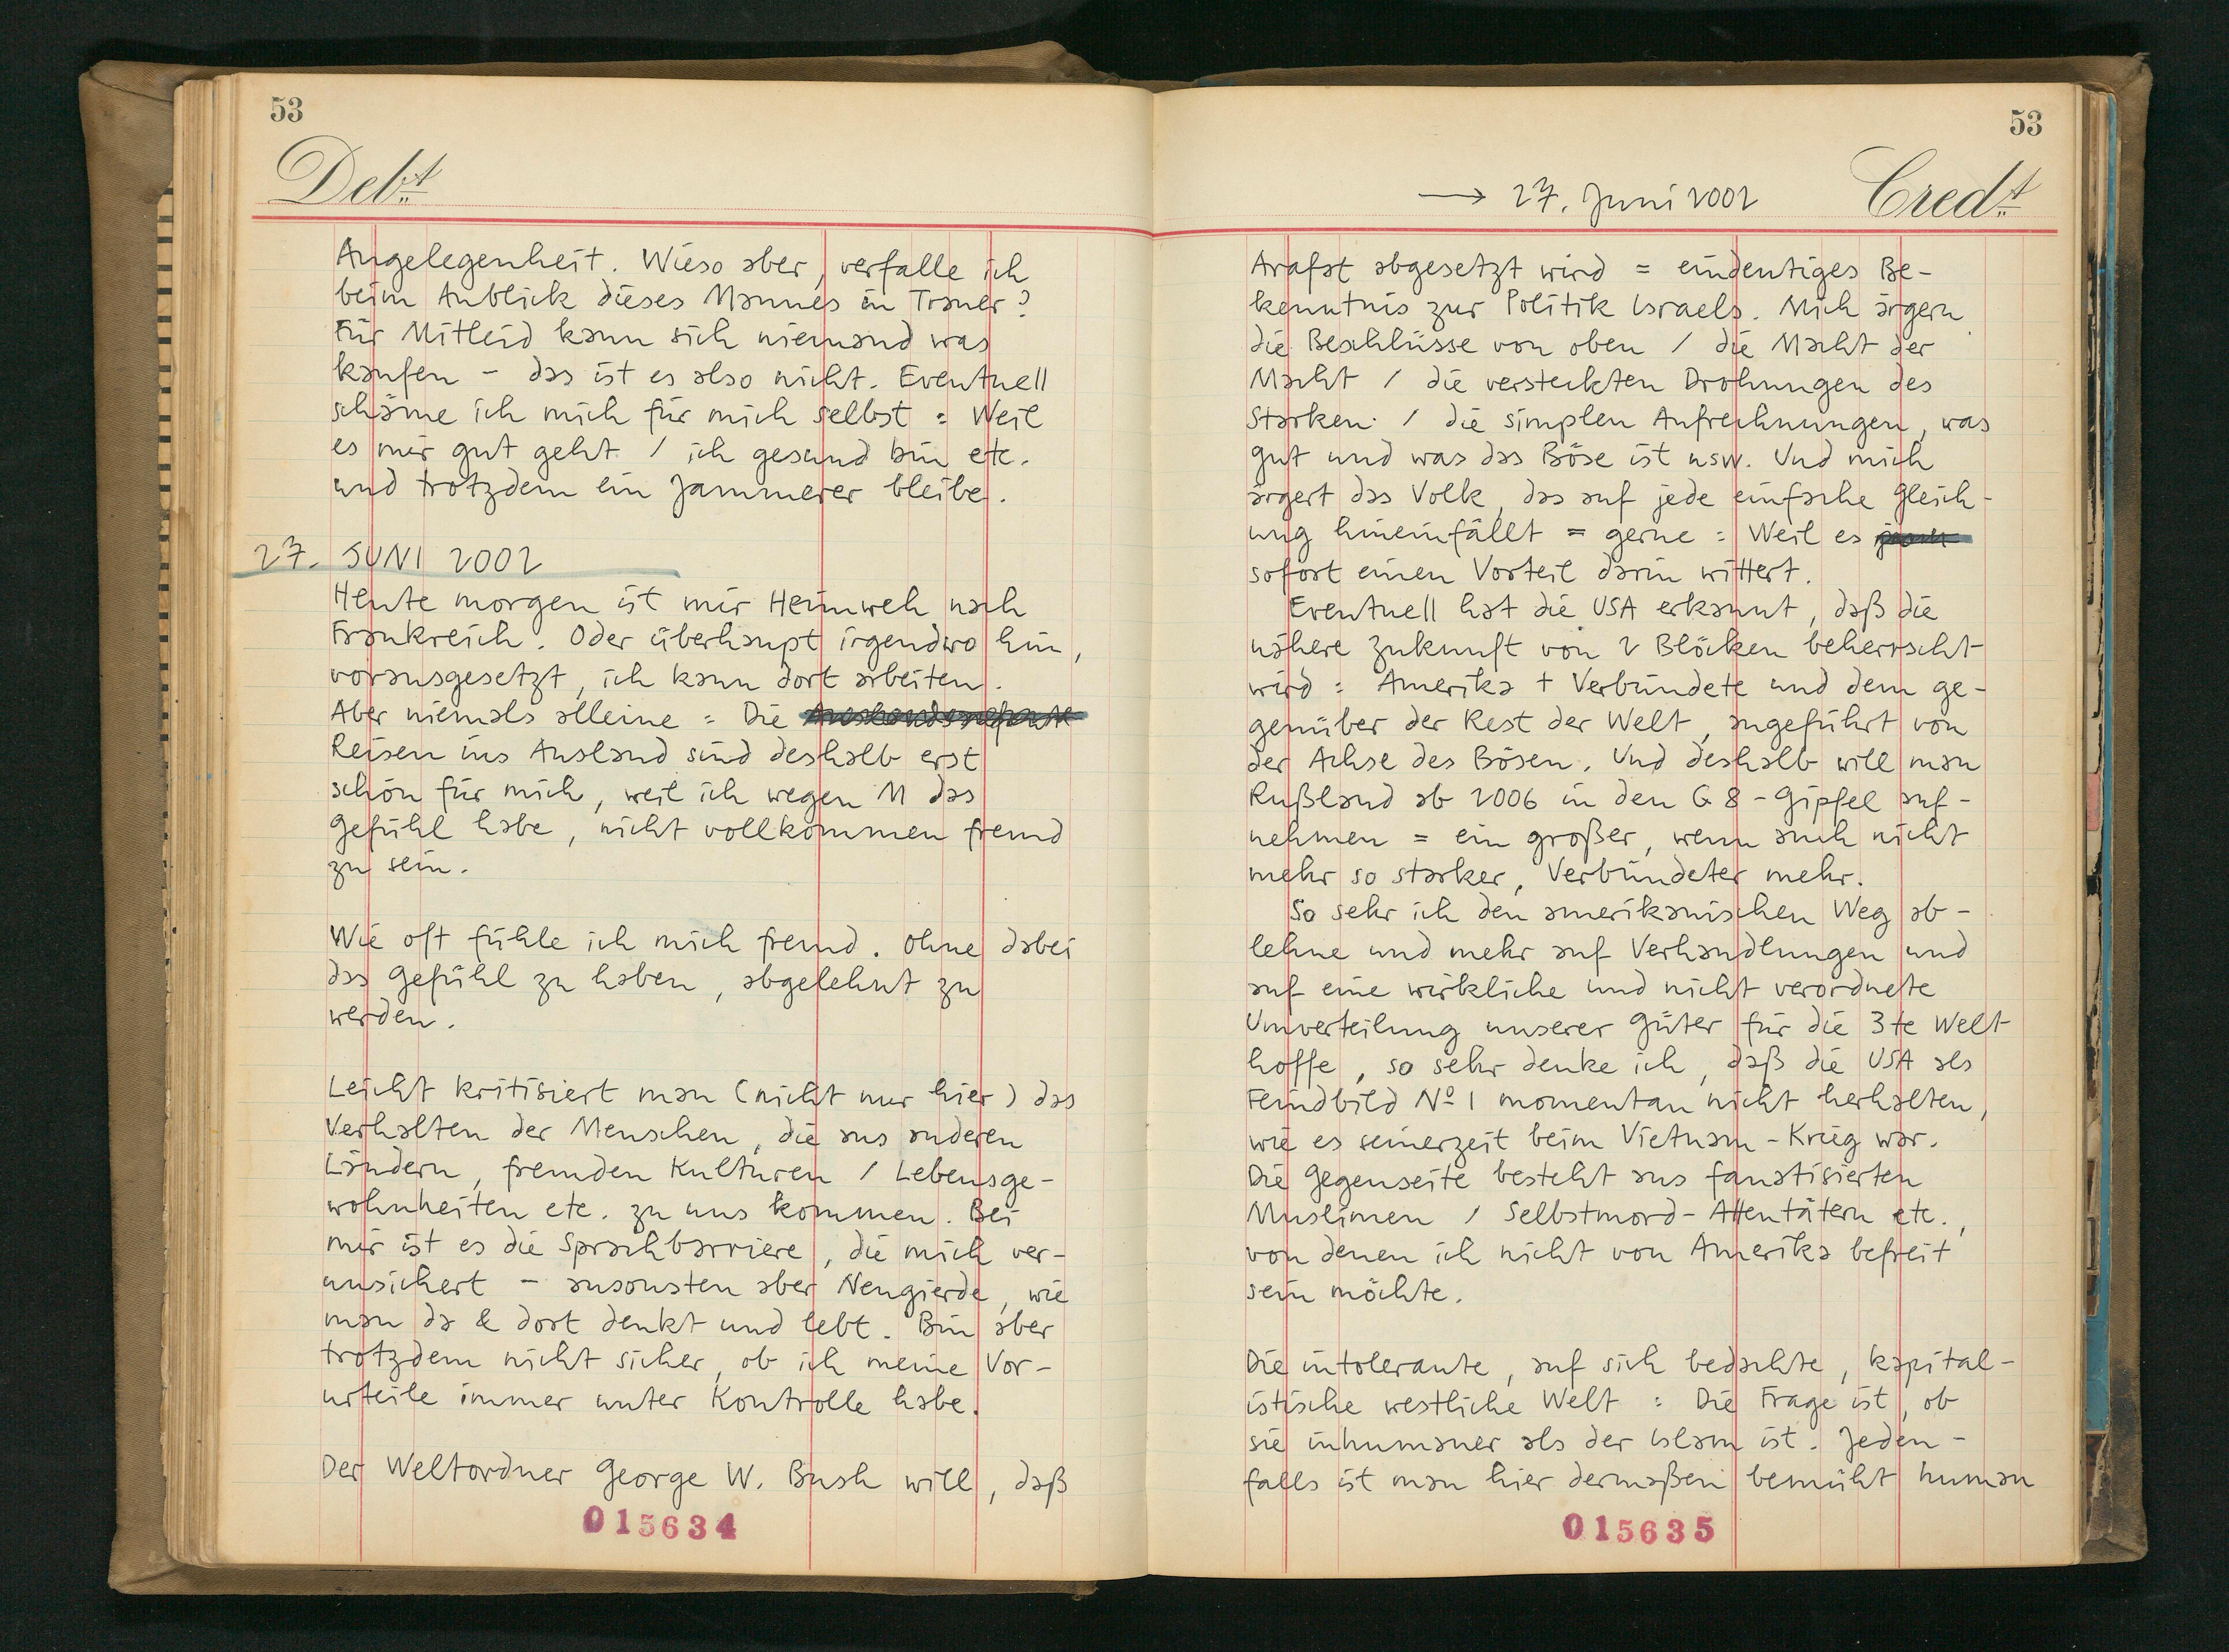 53
Debt
Angelegenheit. Wieso aber, verfalle ich
beim Anblick dieses Mannes in Trauer?
Für Mitleid kann sich niemand was
kaufen – das ist es also nicht. Eventuell
schäme ich mich für mich selbst : Weil
es mir gut geht / ich gesund bin etc.
und trotzdem ein Jammerer bleibe.
27. JUNI 2002
Heute morgen ist mir Heimweh nach
Frankreich. Oder überhaupt irgendwo hin,
vorausgesetzt, ich kann dort arbeiten.
Aber niemals alleine = Die
Reisen ins Ausland sind deshalb erst
schön für mich, weil ich wegen M das
Gefühl habe, nicht vollkommen fremd
zu sein.
Wie oft fühle ich mich fremd. Ohne dabei
das Gefühl zu haben, abgelehnt zu
werden.
Leicht kritisiert man (nicht nur hier) das
Verhalten der Menschen, die aus anderen
Ländern, fremden Kulturen / Lebensge-
wohnheiten etc. zu uns kommen. Bei
mir ist es die Sprachbarriere, die mich ver-
unsichert – ansonsten aber Neugierde, wie
man da & dort denkt und lebt. Bin aber
trotzdem nicht sicher, ob ich meine Vor-
urteile immer unter Kontrolle habe.
Der Weltordner George W. Bush will, daß
015634
53
→ 27. Juni 2002
Credt
Arafat abgesetzt wird = eindeutiges Be-
kenntnis zur Politik Israels. Mich ärgern
die Beschlüsse von oben / die Macht der
Macht / die versteckten Drohungen des
Starken / die simplen Aufrechnungen, was
gut und was das Böse ist usw. Und mich
ärgert das Volk, das auf jede einfache Gleich-
ung hineinfällt = gerne : Weil es
sofort einen Vorteil darin wittert.
Eventuell hat die USA erkannt, daß die
nähere Zukunft von 2 Blöcken beherrscht
wird : Amerika + Verbündete und dem ge-
genüber der Rest der Welt, angeführt von
der Achse des Bösen. Und deshalb will man
Rußland ab 2006 in den G8-Gipfel auf-
nehmen = ein großer, wenn auch nicht
mehr so starker, Verbündeter mehr.
So sehr ich den amerikanischen Weg ab-
lehne und mehr auf Verhandlungen und
auf eine wirkliche und nicht verordnete
Umverteilung unserer Güter für die 3te Welt
hoffe, so sehr denke ich, daß die USA als
Feindbild Nº 1 momentan nicht herhalten,
wie es seinerzeit beim Vietnam-Krieg war.
Die Gegenseite besteht aus fanatisierten
Muslimen / Selbstmord-Attentätern etc.,
von denen ich nicht von Amerika befreit
sein möchte.
Die intolerante, auf sich bedachte, kapital-
istische westliche Welt : Die Frage ist, ob
sie inhumaner als der Islam ist. Jeden-
falls ist man hier dermaßen bemüht human
015635